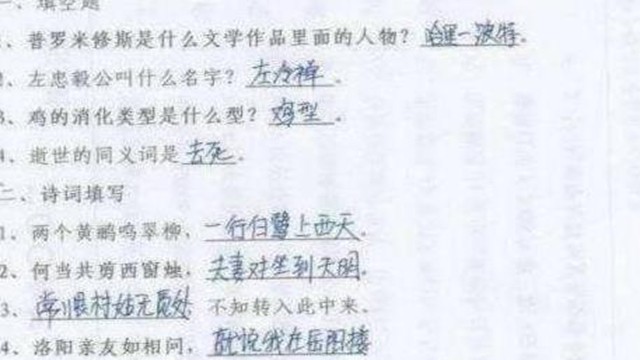 一、填空题
1、普罗米修斯是什么文学作品里面的人物？哈里一波特。
2、左忠毅公叫什么名字？左冷禅。
3、鸡的消化类型是什么型？鸡型。
4、逝世的同义词是去死。
二、诗词填写
1、两个黄鹂鸣翠柳，一行白鹭上西天。
2、何当共剪西窗烛，夫妻对坐到天明。
3、常恨村姑无觅处 不知转入此中来、
4、洛阳亲友如相问，就说我在岳阳楼